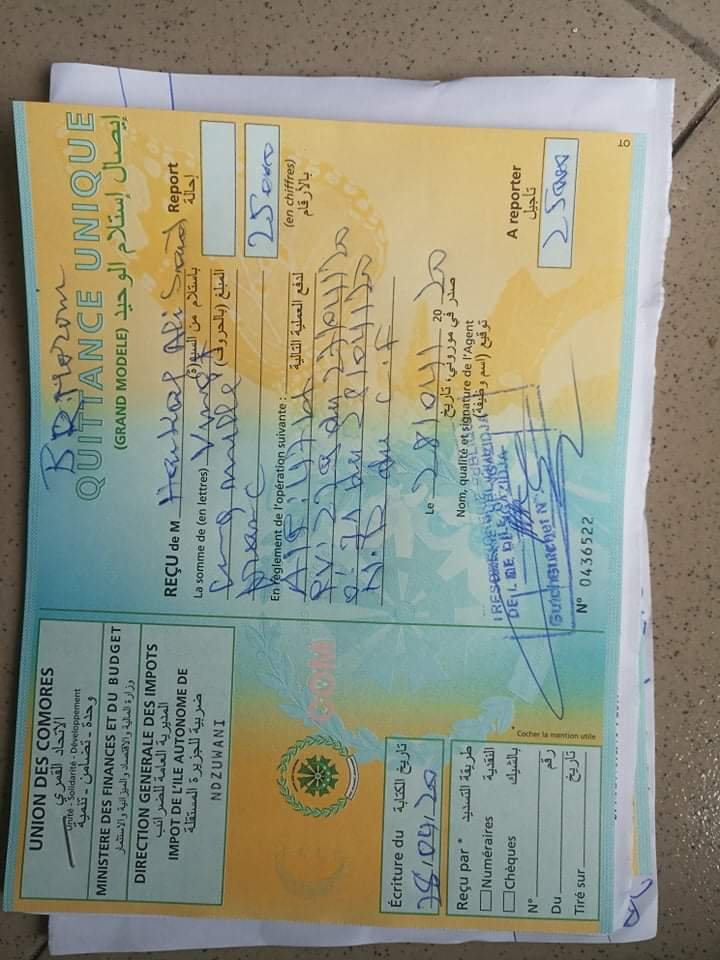 UNION DES COMORES
Unité - Solidarité - Développement
الاتحاد القمري
وحدة - تضامن - تنمية
MINISTERE DES FINANCES ET DU BUDGET
وزارة المالية والاقتصاد والميزانية والاستثمار
DIRECTION GENERALE DES IMPOTS
المديرية العامة للضرائب
IMPOT DE L'ILE AUTONOME DE
ضريبة للجزيرة المستقلة
NDZUWANI
COM
Écriture du تاريخ الكتابة
28.04.20
Reçu par * طريقة التسديد
Numéraires النقدية
Chèques بالشيك
N° رقم
Du تاريخ
Tiré sur
* Cocher la mention utile
QUITTANCE UNIQUE
(GRAND MODELE) إيصال إستلام الوحيد
REÇU de M Ali
باستلام من السيد(ة)
Report
إحالة
La somme de (en lettres) Vingt المبلغ (بالحروف)
Cinq mille
25000
(en chiffres)
بالأرقام
En règlement de l'opération suivante : لدفع العملية التالية
du 27/04/20
du 28/04/20
Le 28/04/ 20 20
صدر في موروني، تاريخ
Nom, qualité et signature de l'Agent
توقيع (اسم وظيفة)
A reporter
تأجيل
25000
N° 0436522
TO